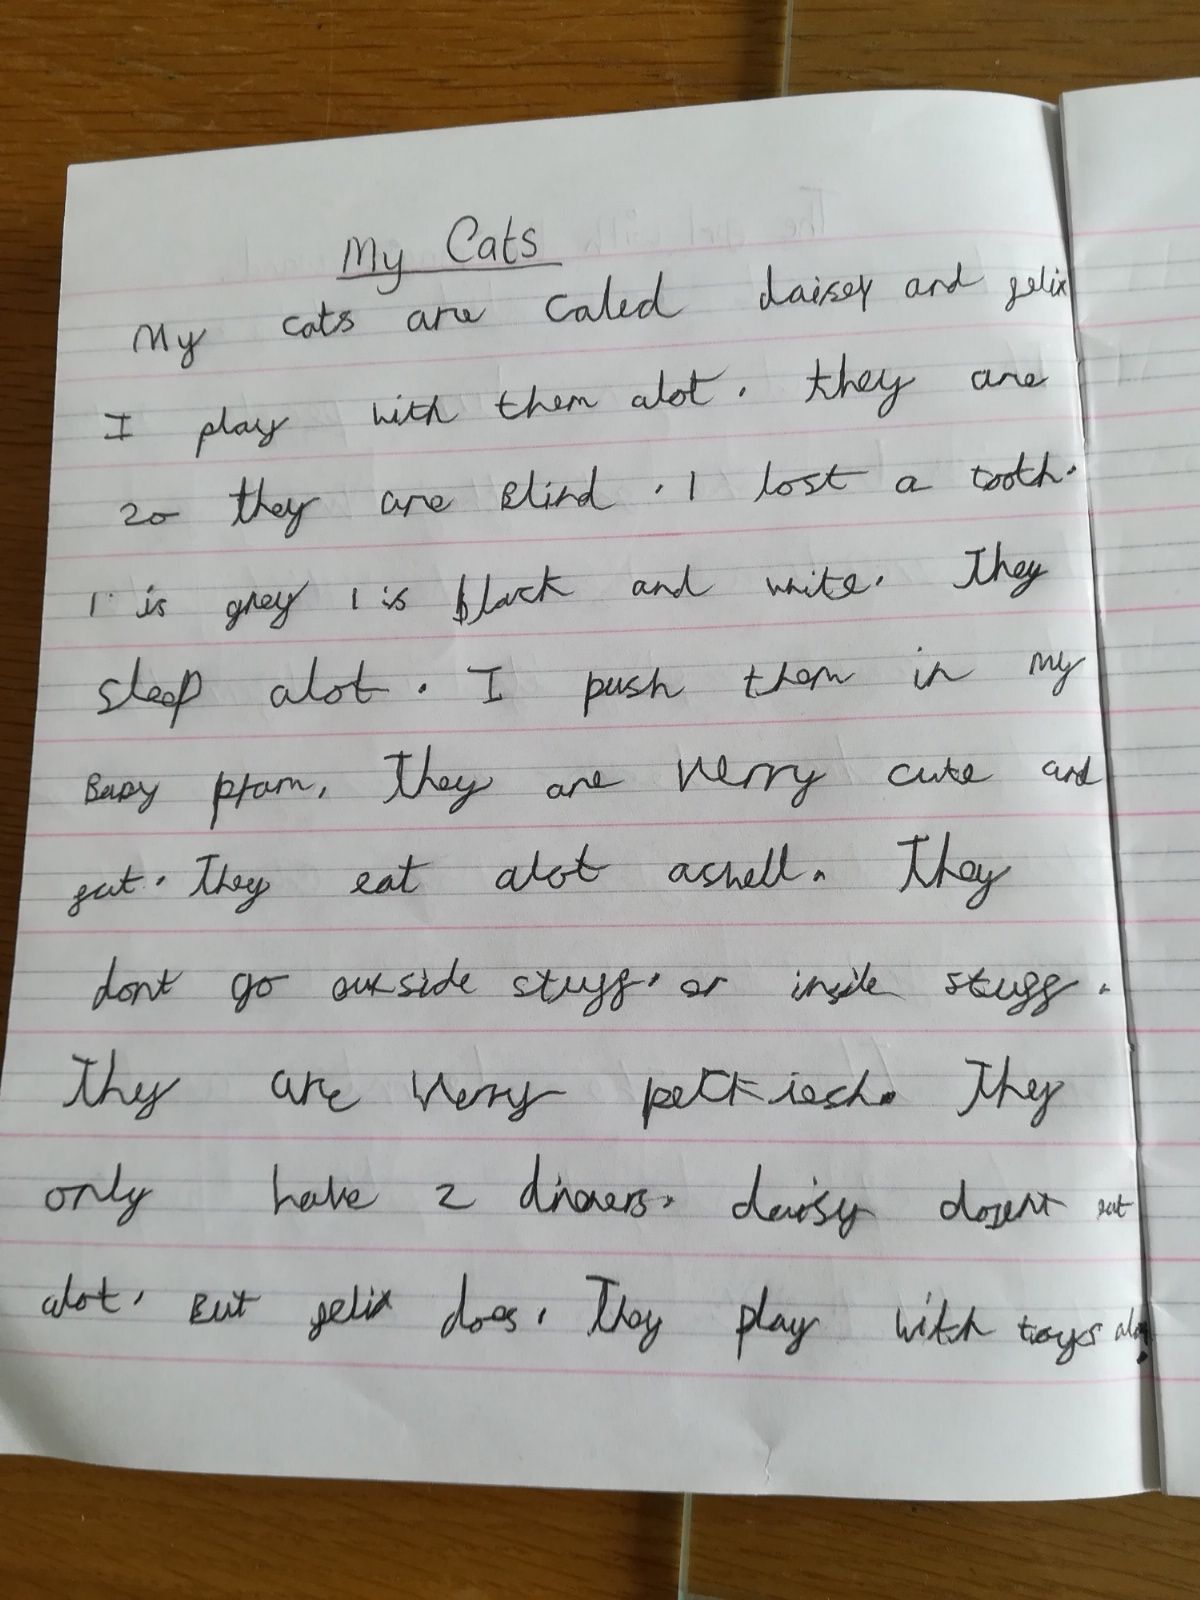 My Cats
My cats are caled daisey and felix
I play with them alot. they are
20 they are Blind. I lost a tooth.
1 is grey 1 is black and white. They
sleep alot. I push them in my
Baby pram. They are verry cute and
fat. They eat alot aswell. They
dont go outside stuff. or inside stuff.
They are verry
only have 2 dinners. daisy dosent eat
alot. But felix does. They play with toys